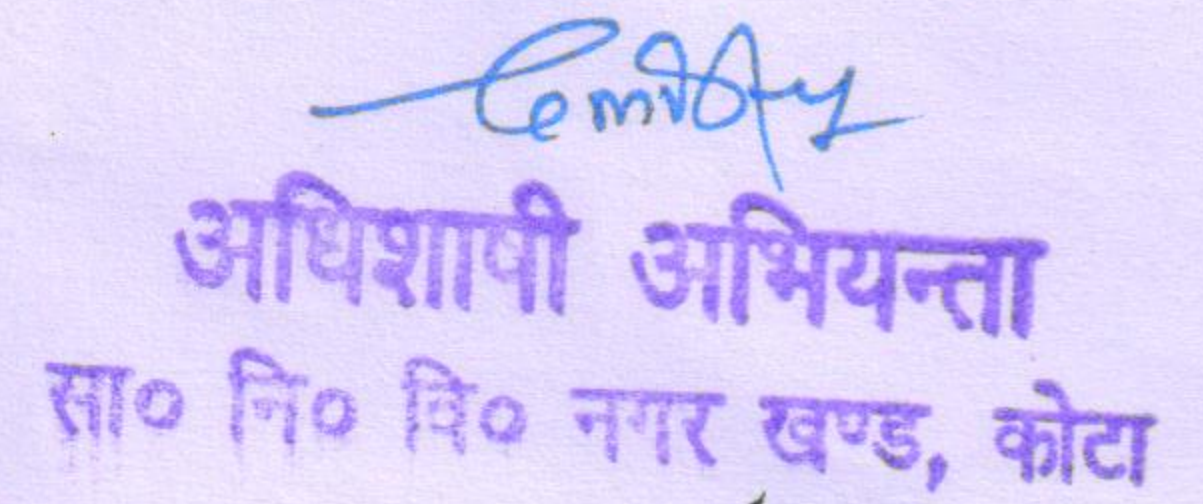 अधिशाषी अभियन्ता
सा० नि० वि० नगर खण्ड, कोटा